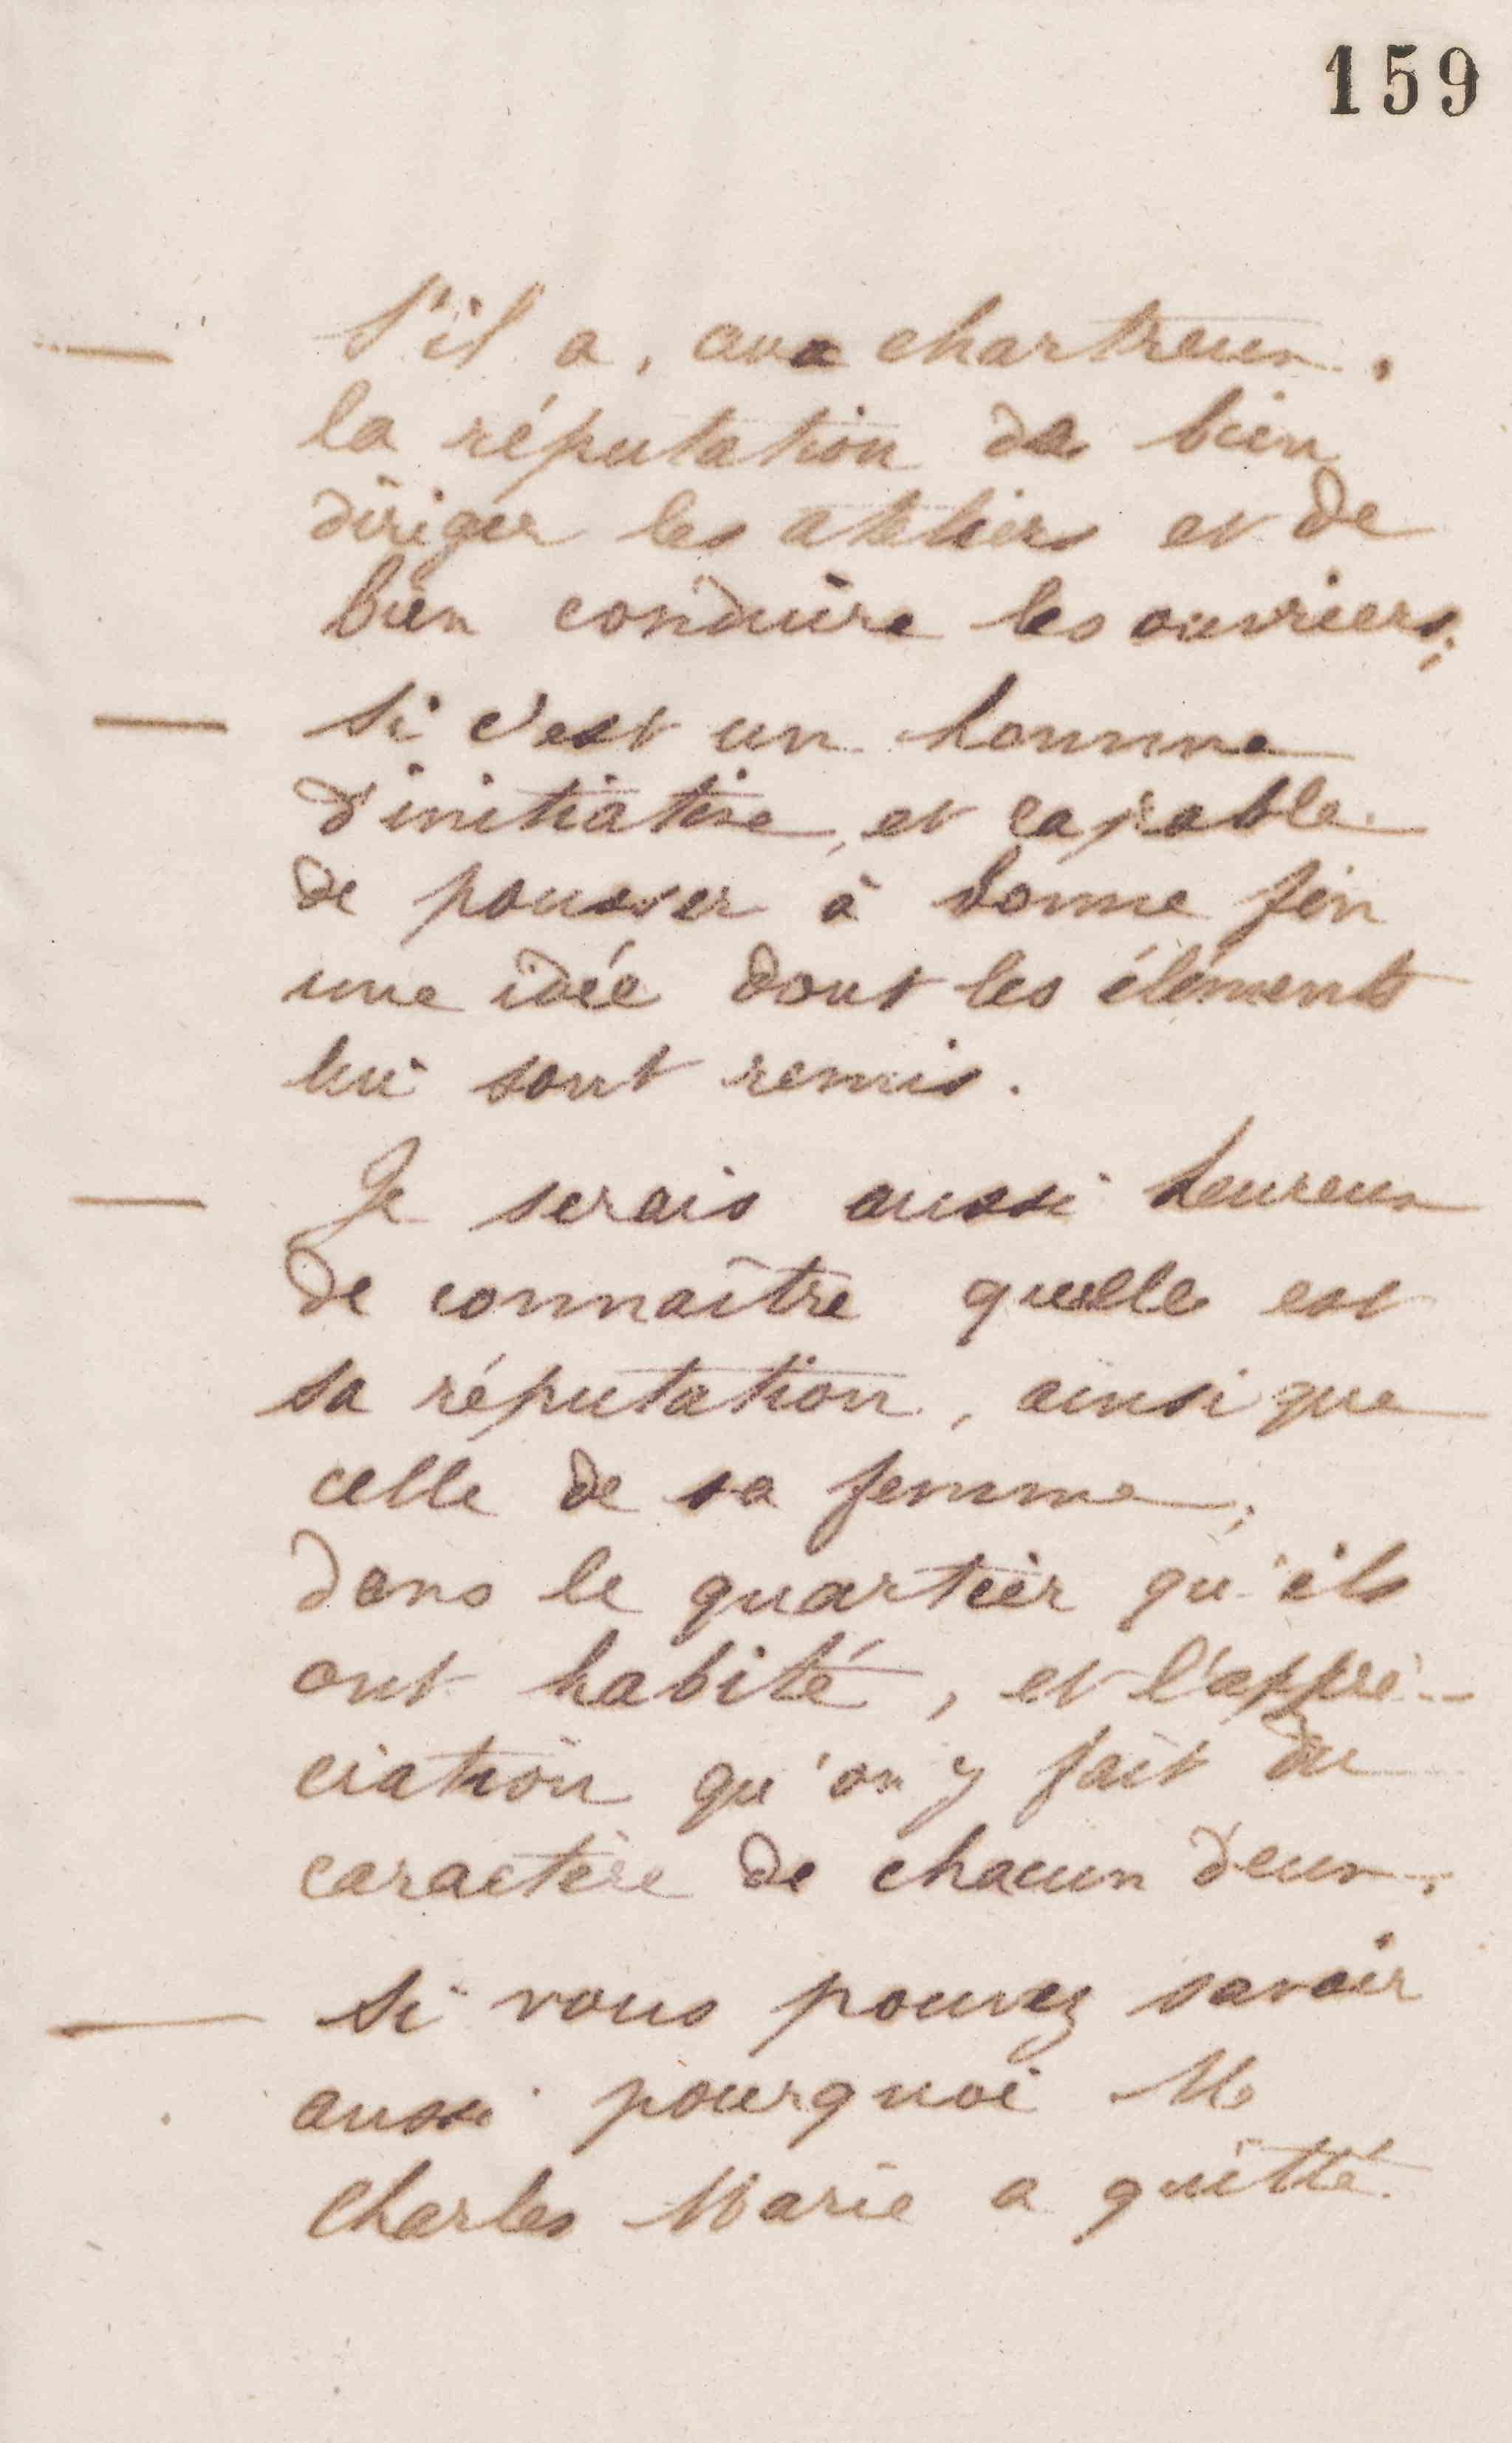 159
— S'il a, aux chartreux,
la réputation de bien
diriger les ateliers et de
bien conduire les ouvriers;
— Si c'est un homme
d'initiative, et capable
de pousser à bonne fin
une idée dont les éléments
lui sont remis.
— Je serais aussi heureux
de connaître quelle est
sa réputation, ainsi que
celle de sa femme,
dans le quartier qu'ils
ont habité, et l'appré-
ciation qu'on y fait du
caractère de chacun d'eux.
— Si vous pouvez savoir
aussi pourquoi M
Charles Marie a quitté